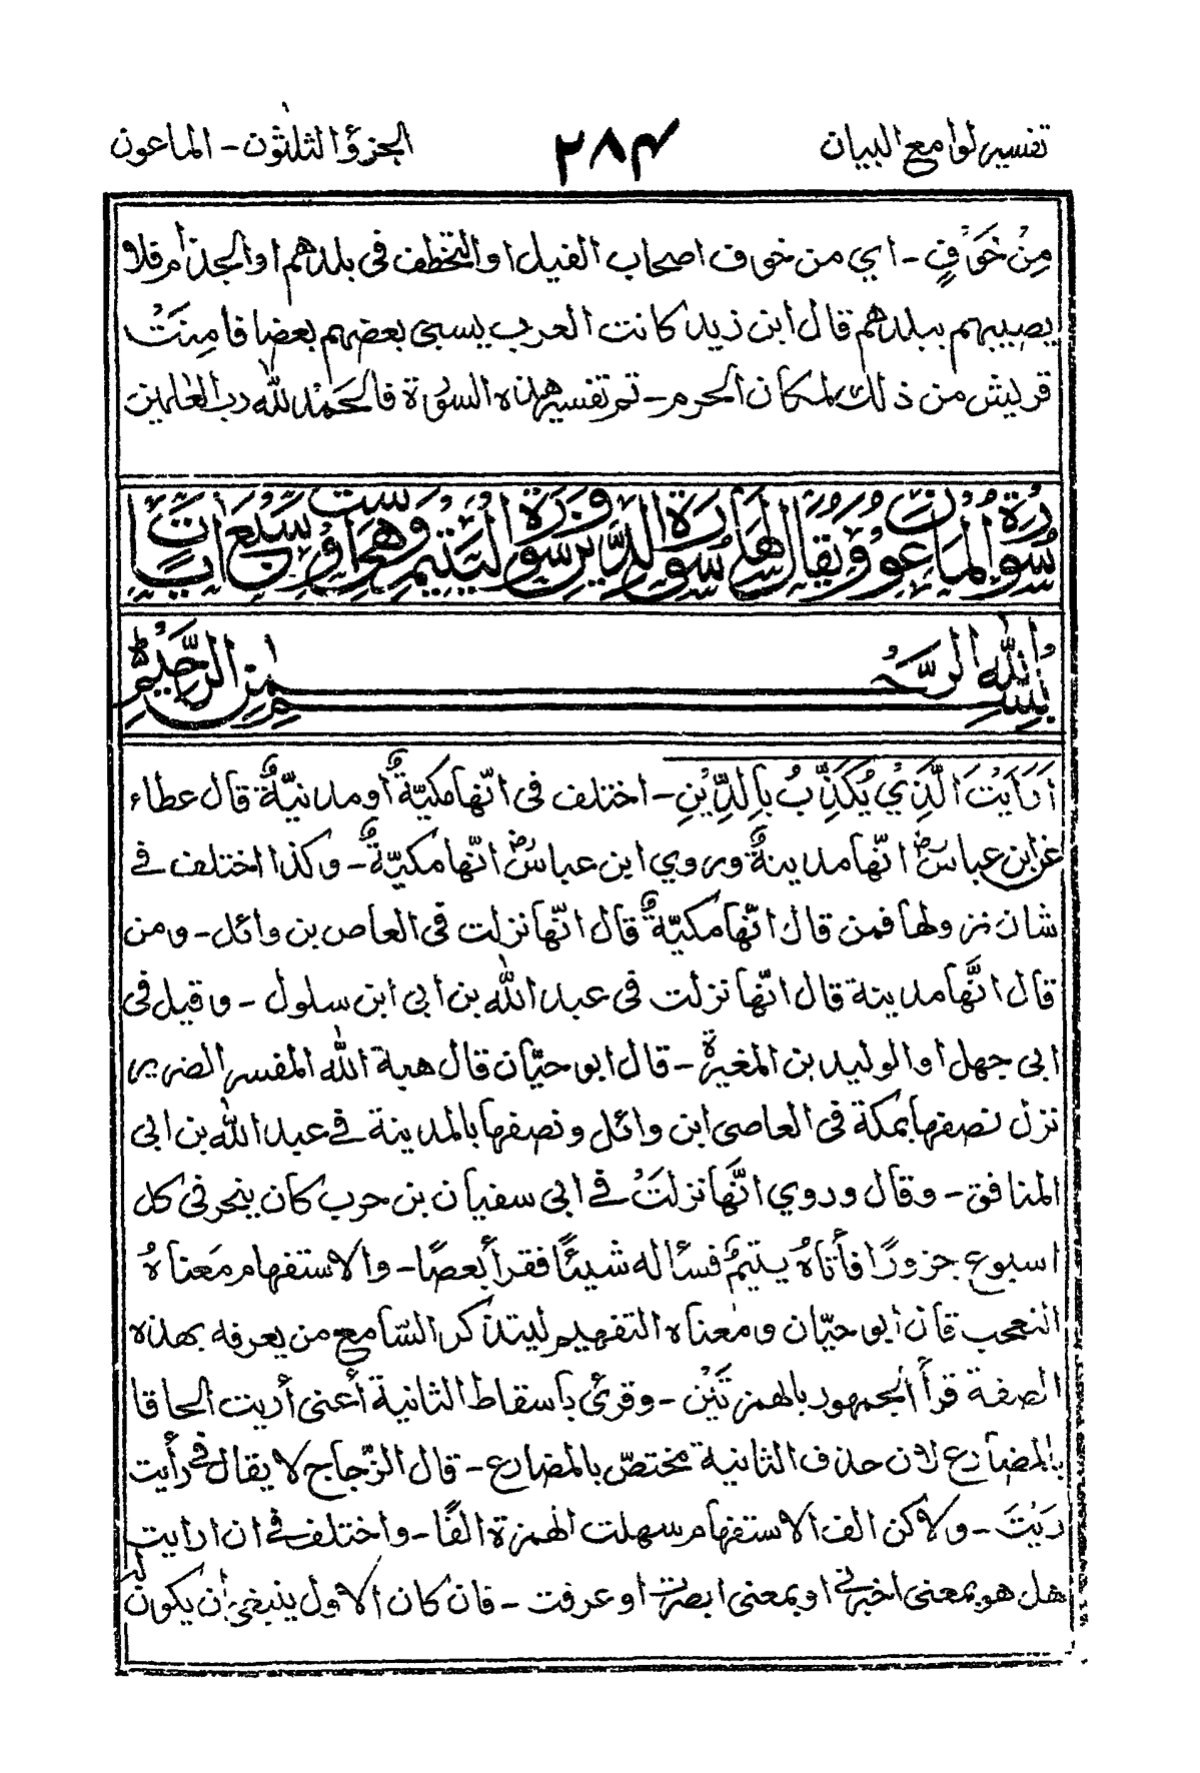 تفسير لوامع البيان
٢٨٤
الجزؤ الثلثون - الماعون
مِنْ خَوْفٍ - اي من خوف اصحاب الفيل او التخطف في بلدهم او الجذام فلا
يصيبهم ببلدهم قال ابن زيد كانت العرب يسبى بعضهم بعضا فامِنَتْ
قريش من ذلك لمكان الحرم - تم تفسير هذه السورة فالحَمْد لله رب العٰلمين
سُوْرَةُ الْمَاعُوْن وَيقال لها سُوْرَة الدِّيْن وسُوْرَة اليَتِيْم وَهِيَ سِتّ او سَبْع اٰيَات
بِسْمِ اللهِ الرَّحْمٰنِ الرَّحِيْمِ
اَرَاَيْتَ الَّذِيْ يُكَذِّبُ بِالدِّيْنِ - اختلف في انّها مكيّةٌ أو مدنيّةٌ قال عطاء
عن ابن عباسؓ انّها مدينةٌ وروي ابن عباسؓ انّها مكيّةٌ - وكذا اختلف في
شان نزولها فمن قال انّها مكيّةٌ قال انّها نزلت في العاص بن وائل - ومن
قال انَّها مدينة قال انّها نزلت في عبد الله بن ابي ابن سلول - وقيل في
ابي جهل او الوليد بن المغيرة - قال ابو حيّان قال هبة الله المفسر الضرير
نزل نصفها بمكة في العاصي ابن وائل ونصفها بالمدينة في عبد الله بن ابي
المنافق - وقال وروي انَّها نزلَتْ في ابي سفيان بن حرب كان ينحر في كل
اسبوع جزورًا فأتاهُ يتيمٌ فسأله شيئًا فقرأ بعصًا - والاستفهام مَعناهُ
التعجب قال أبو حيّان ومعناه التفهيم ليتذكر السّامع من يعرفه بهذه
الصفة قرأ الجمهور بالهمزتَيْن - وقرئ بأسقاط الثانية أعنى أريت الحاقا
بالمضارع لان حذف الثانية مختصّ بالمضارع - قال الزّجاج لا يقال في رأيت
رَيْتَ - ولاكن الف الاستفهام سهلت الهمزة الفًا - واختلف في ان ارايت
هل هو بمعنى اخبرني او بمعنى ابصرت او عرفت - فان كان الاول ينبغي أن يكون له